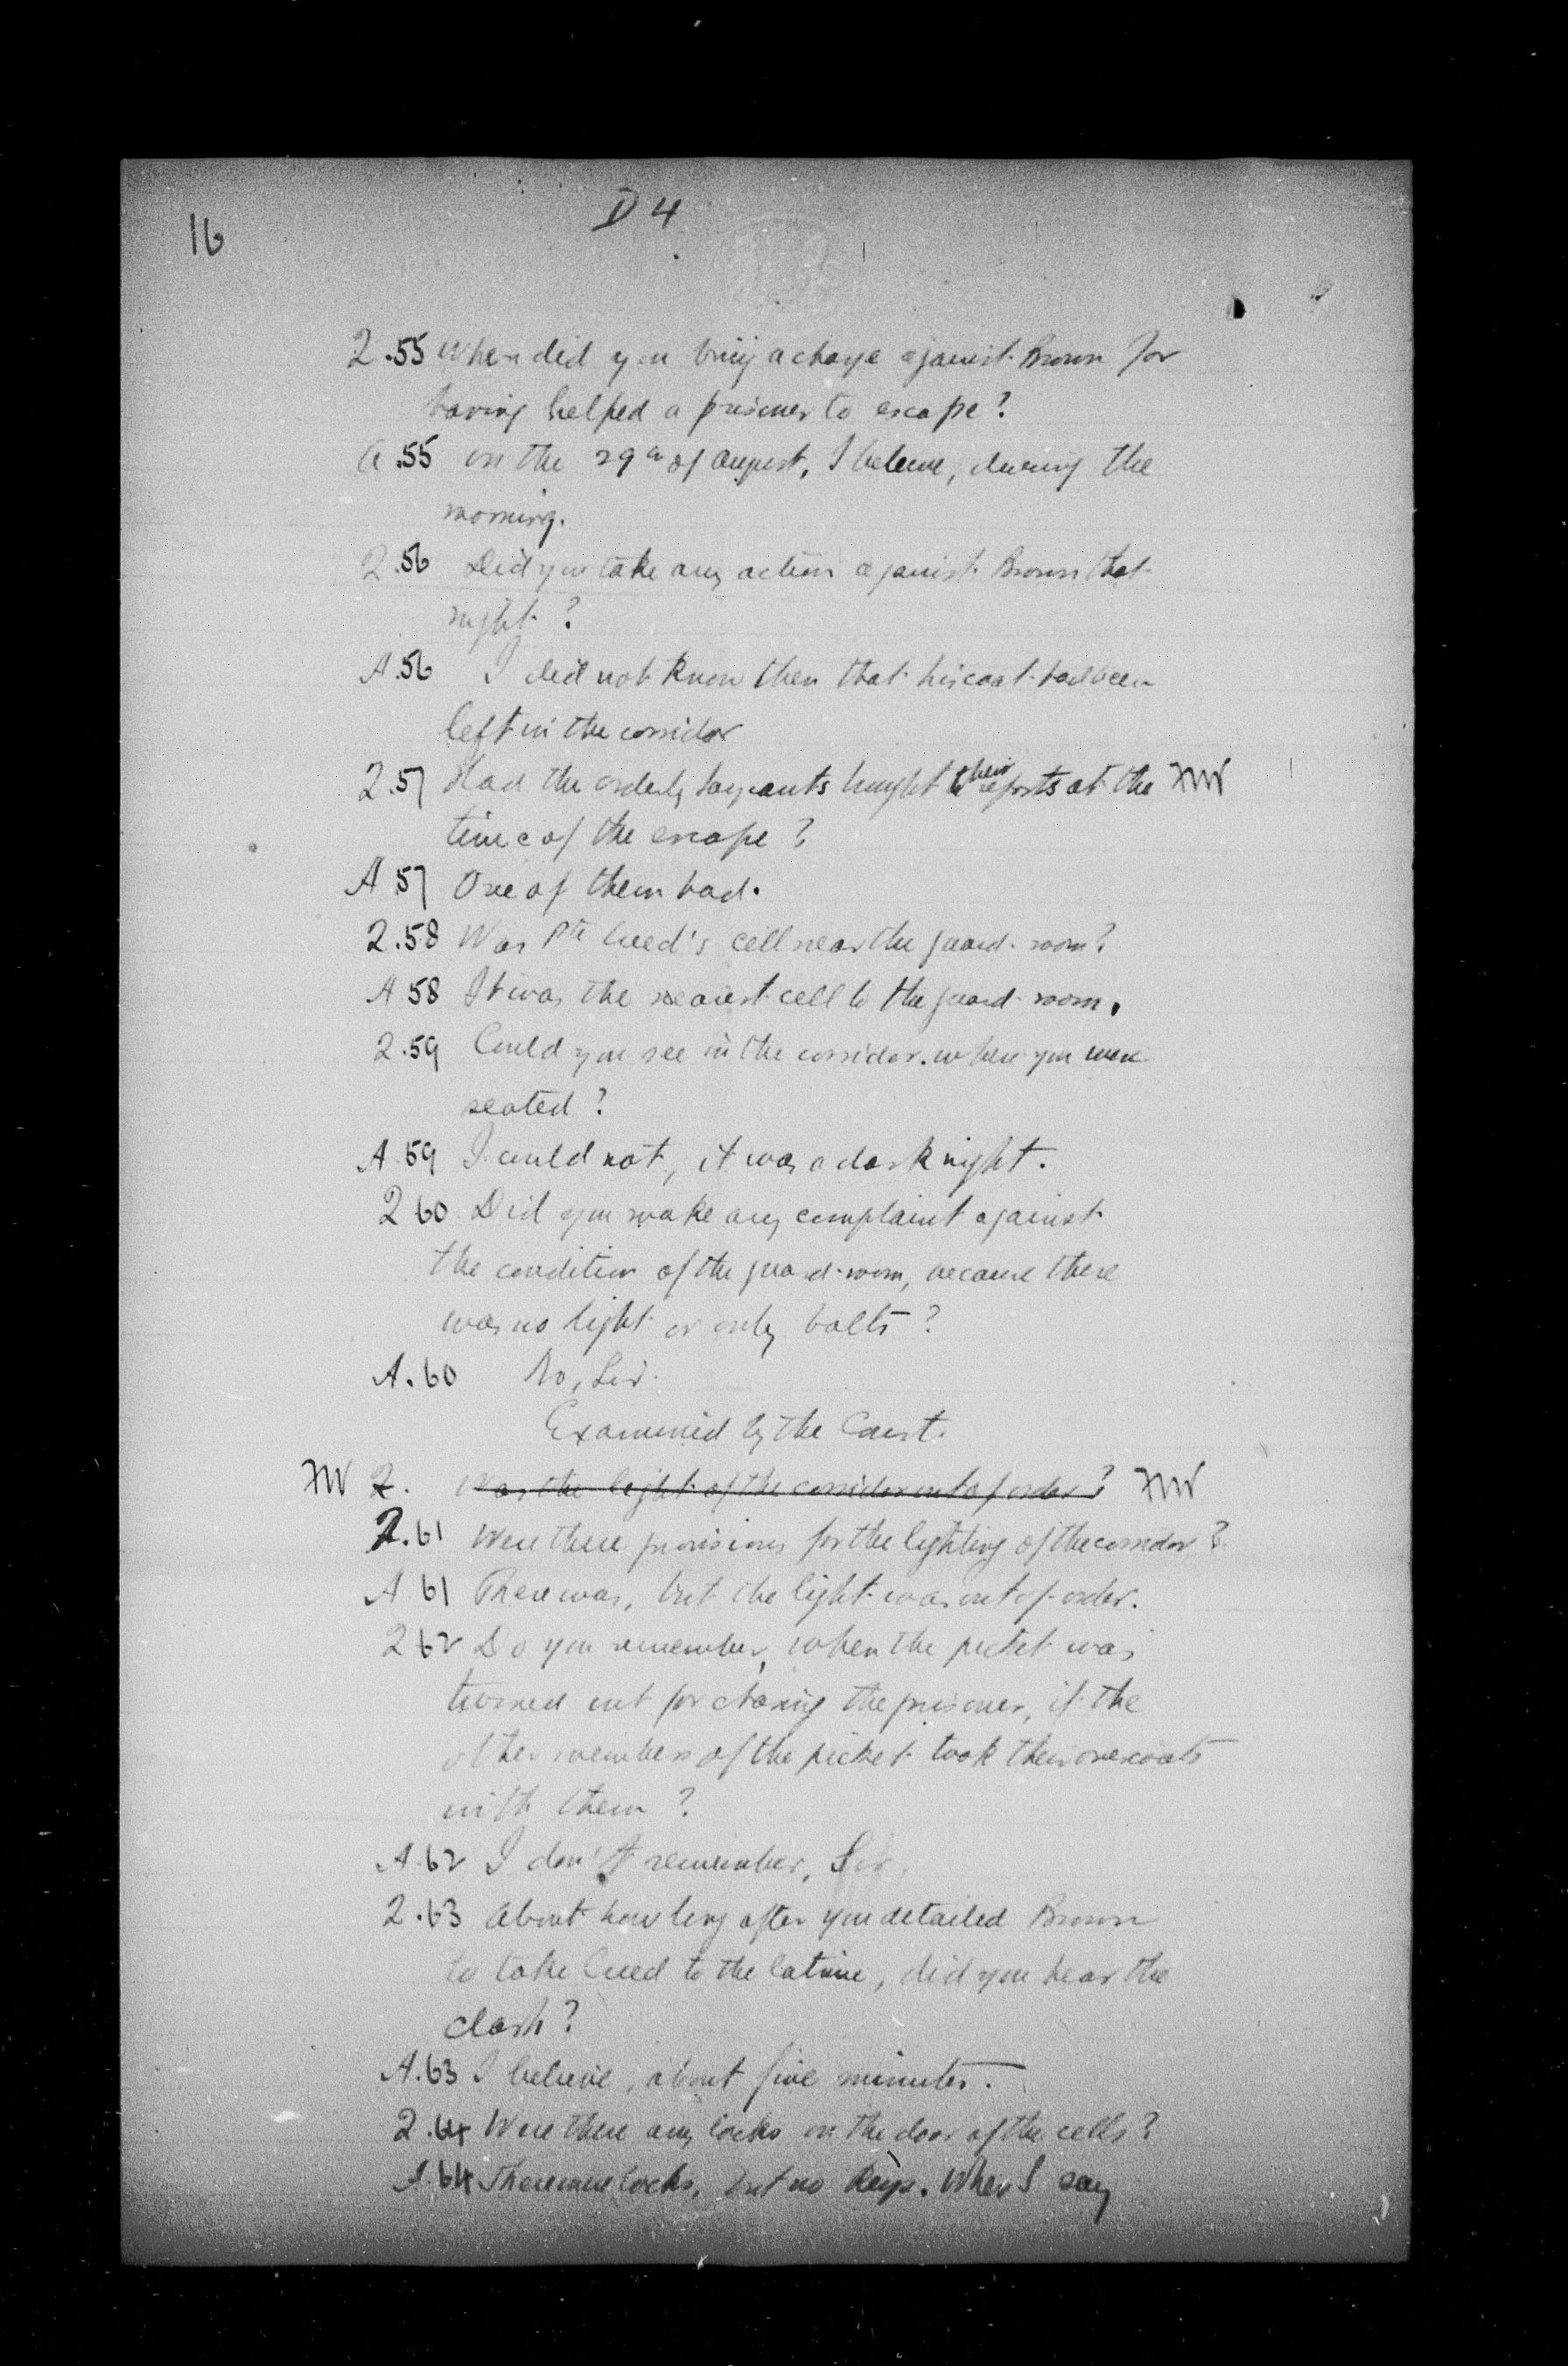 16
D 4
Q.55 When did you bring a charge against Brown for
having helped a prisoner to escape?
A.55 on the 29th of August, I believe, during the
morning.
Q.56 Did you take any action against Brown that
night?
A.56 I did not know then that his coat had been
left in the corridor
Q.57 Had the orderly sergeants brought their reports at the
time of the escape?
A 57 One of them had.
Q.58 Was Pte Creed's cell near the guard-room?
A 58 It was the nearest cell to the guard-room.
Q.59 Could you see in the corridor where you were
seated?
A.59 I could not, it was a dark night.
Q 60 Did you make any complaint against
the condition of the guard-room, because there
was no light or only bolts?
A.60 No, Sir.
Examined by the Court.
Q. Was the light of the corridor out of order?
Q.61 Were there provisions for the lighting of the corridor?
A 61 There was, but the light was out of order.
Q 62 Do you remember, when the picket was
turned out for chasing the prisoner, if the
other members of the picket took their overcoats
with them?
A.62 I don't remember, Sir.
Q.63 About how long after you detailed Brown
to take Creed to the latrine, did you hear the
clash?
A.63 I believe, about five minutes.
Q.64 Were there any locks on the door of the cells?
A.64 There were locks, but no keys. When I say